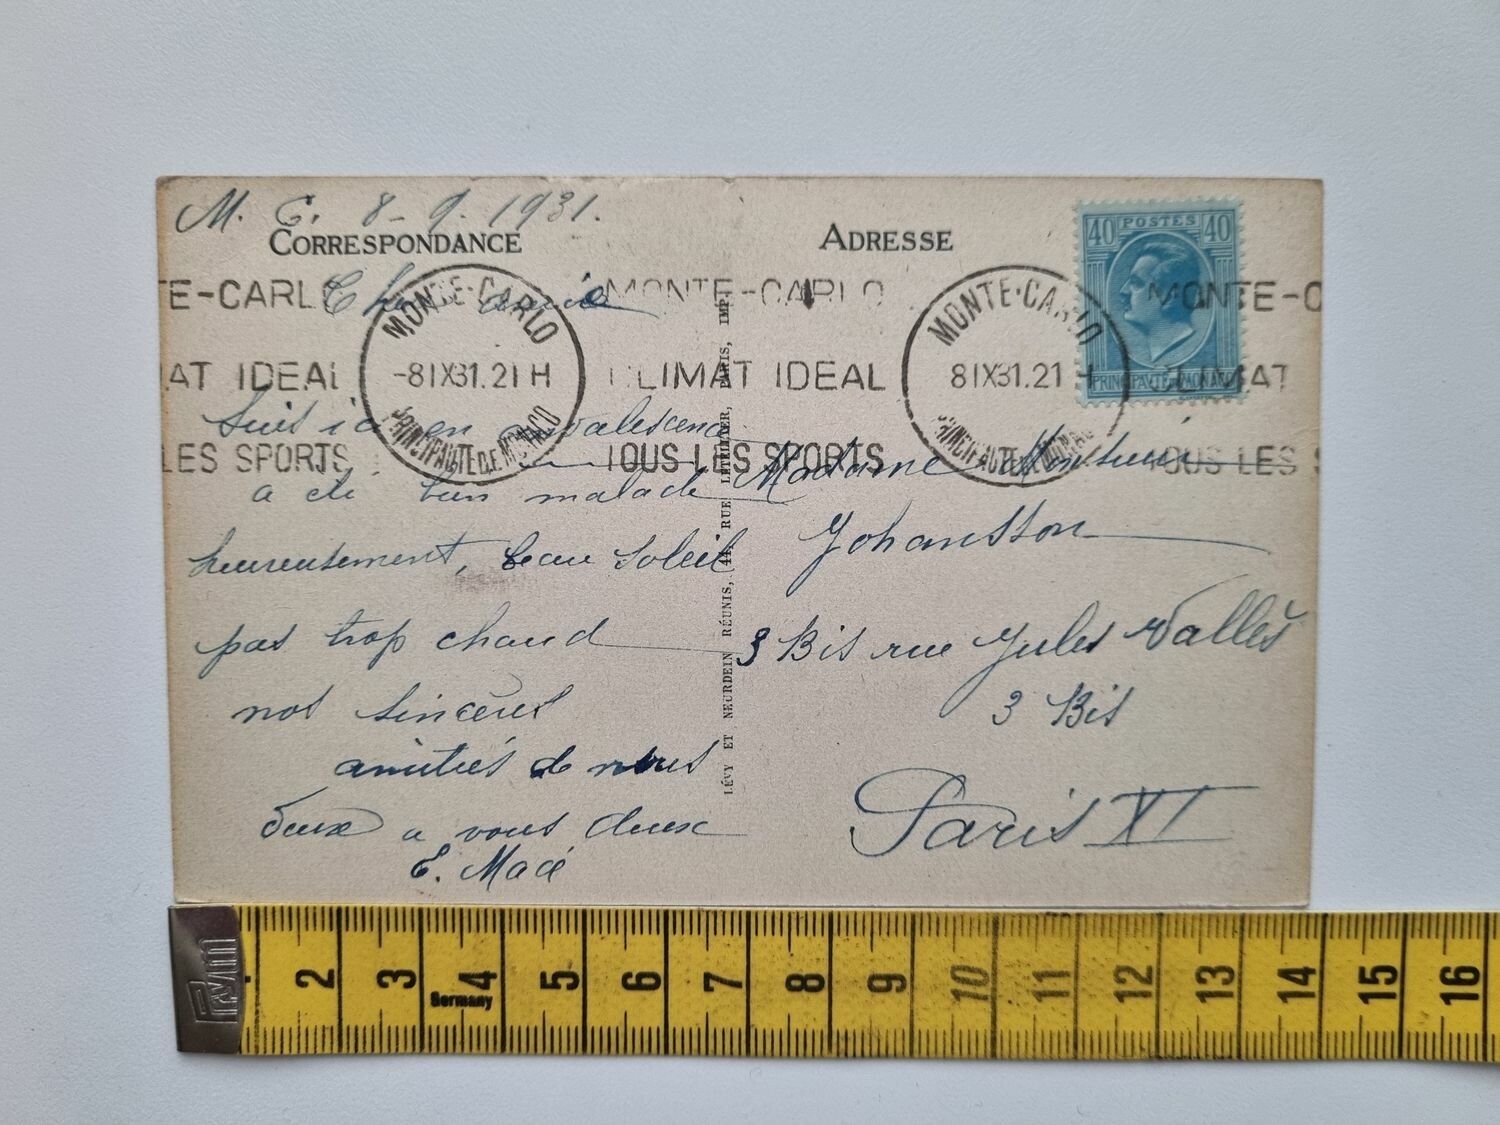 M. C. 8-9. 1931.
CORRESPONDANCE
ADRESSE
TE-CARL
MONTE-CARLO
MONTE-C
AT IDEAL
CLIMAT IDEAL
CLIMAT
LES SPORTS
TOUS LES SPORTS
TOUS LES S
MONTE-CARLO
-8IX31.21H
PRINCIPAUTE DE MONACO
MONTE-CARLO
8IX31.21H
PRINCIPAUTE DE MONACO
40 POSTES 40
PRINCIPAVTE DE MONACO
amie
Suis ici en
a été bien malade
heureusement, beau soleil
pas trop chaud
nos sincères
amitiés de nous
Deux a vous deux
E. Macé
LÉVY ET NEURDEIN RÉUNIS, 44, RUE LETELLIER, PARIS, IMP.
Madame Monsieur
Johansson
3 Bis rue Jules Vallès
3 Bis
Paris XI
Prym
2 3 4 5 6 7 8 9 10 11 12 13 14 15 16
Germany